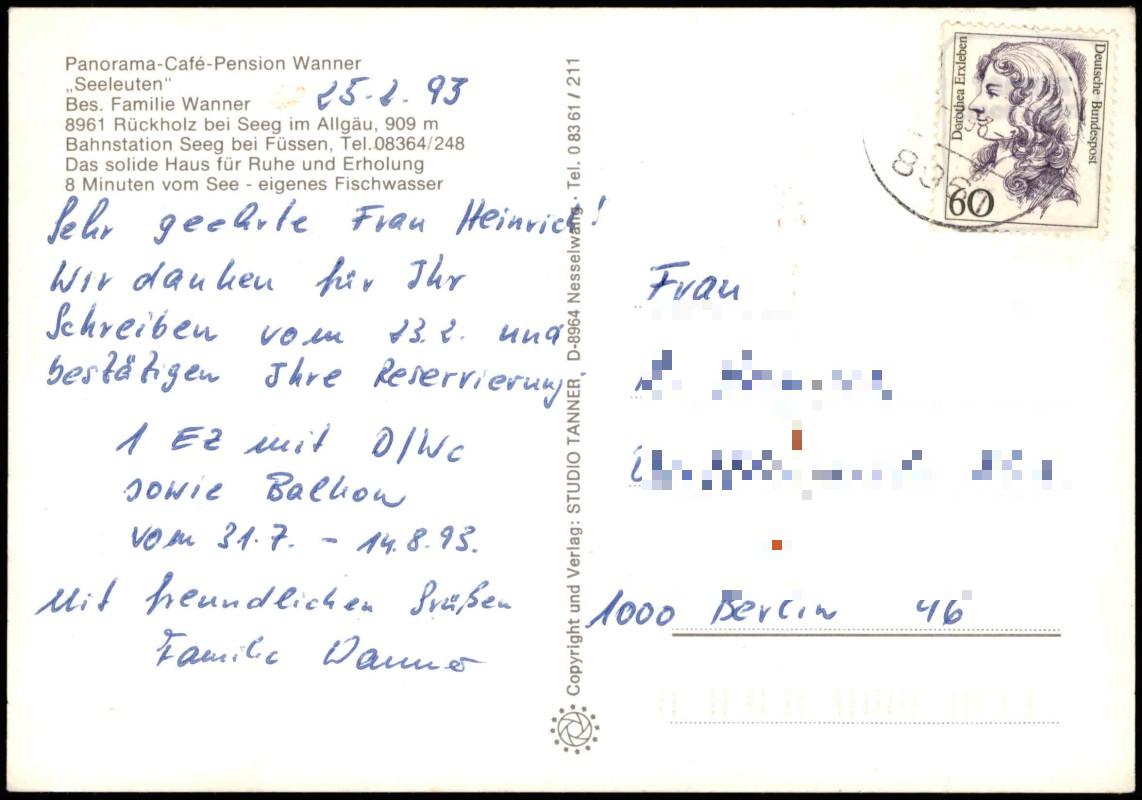 Panorama-Café-Pension Wanner
„Seeleuten“
Bes. Familie Wanner
25.2.93
8961 Rückholz bei Seeg im Allgäu, 909 m
Bahnstation Seeg bei Füssen, Tel.08364/248
Das solide Haus für Ruhe und Erholung
8 Minuten vom See - eigenes Fischwasser
Sehr geehrte Frau Heinrich!
Wir danken für Ihr
Schreiben vom 23.2. und
bestätigen Ihre Reservierung.
1 EZ mit D/WC
sowie Balkon
vom 31.7. - 14.8.93.
Mit freundlichen Grüßen
Familie Wanner
Copyright und Verlag: STUDIO TANNER, D-8964 Nesselwang · Tel. 0 83 61 / 211
Dorothea Erxleben
Deutsche Bundespost
60
896
Frau
1000 Berlin 46